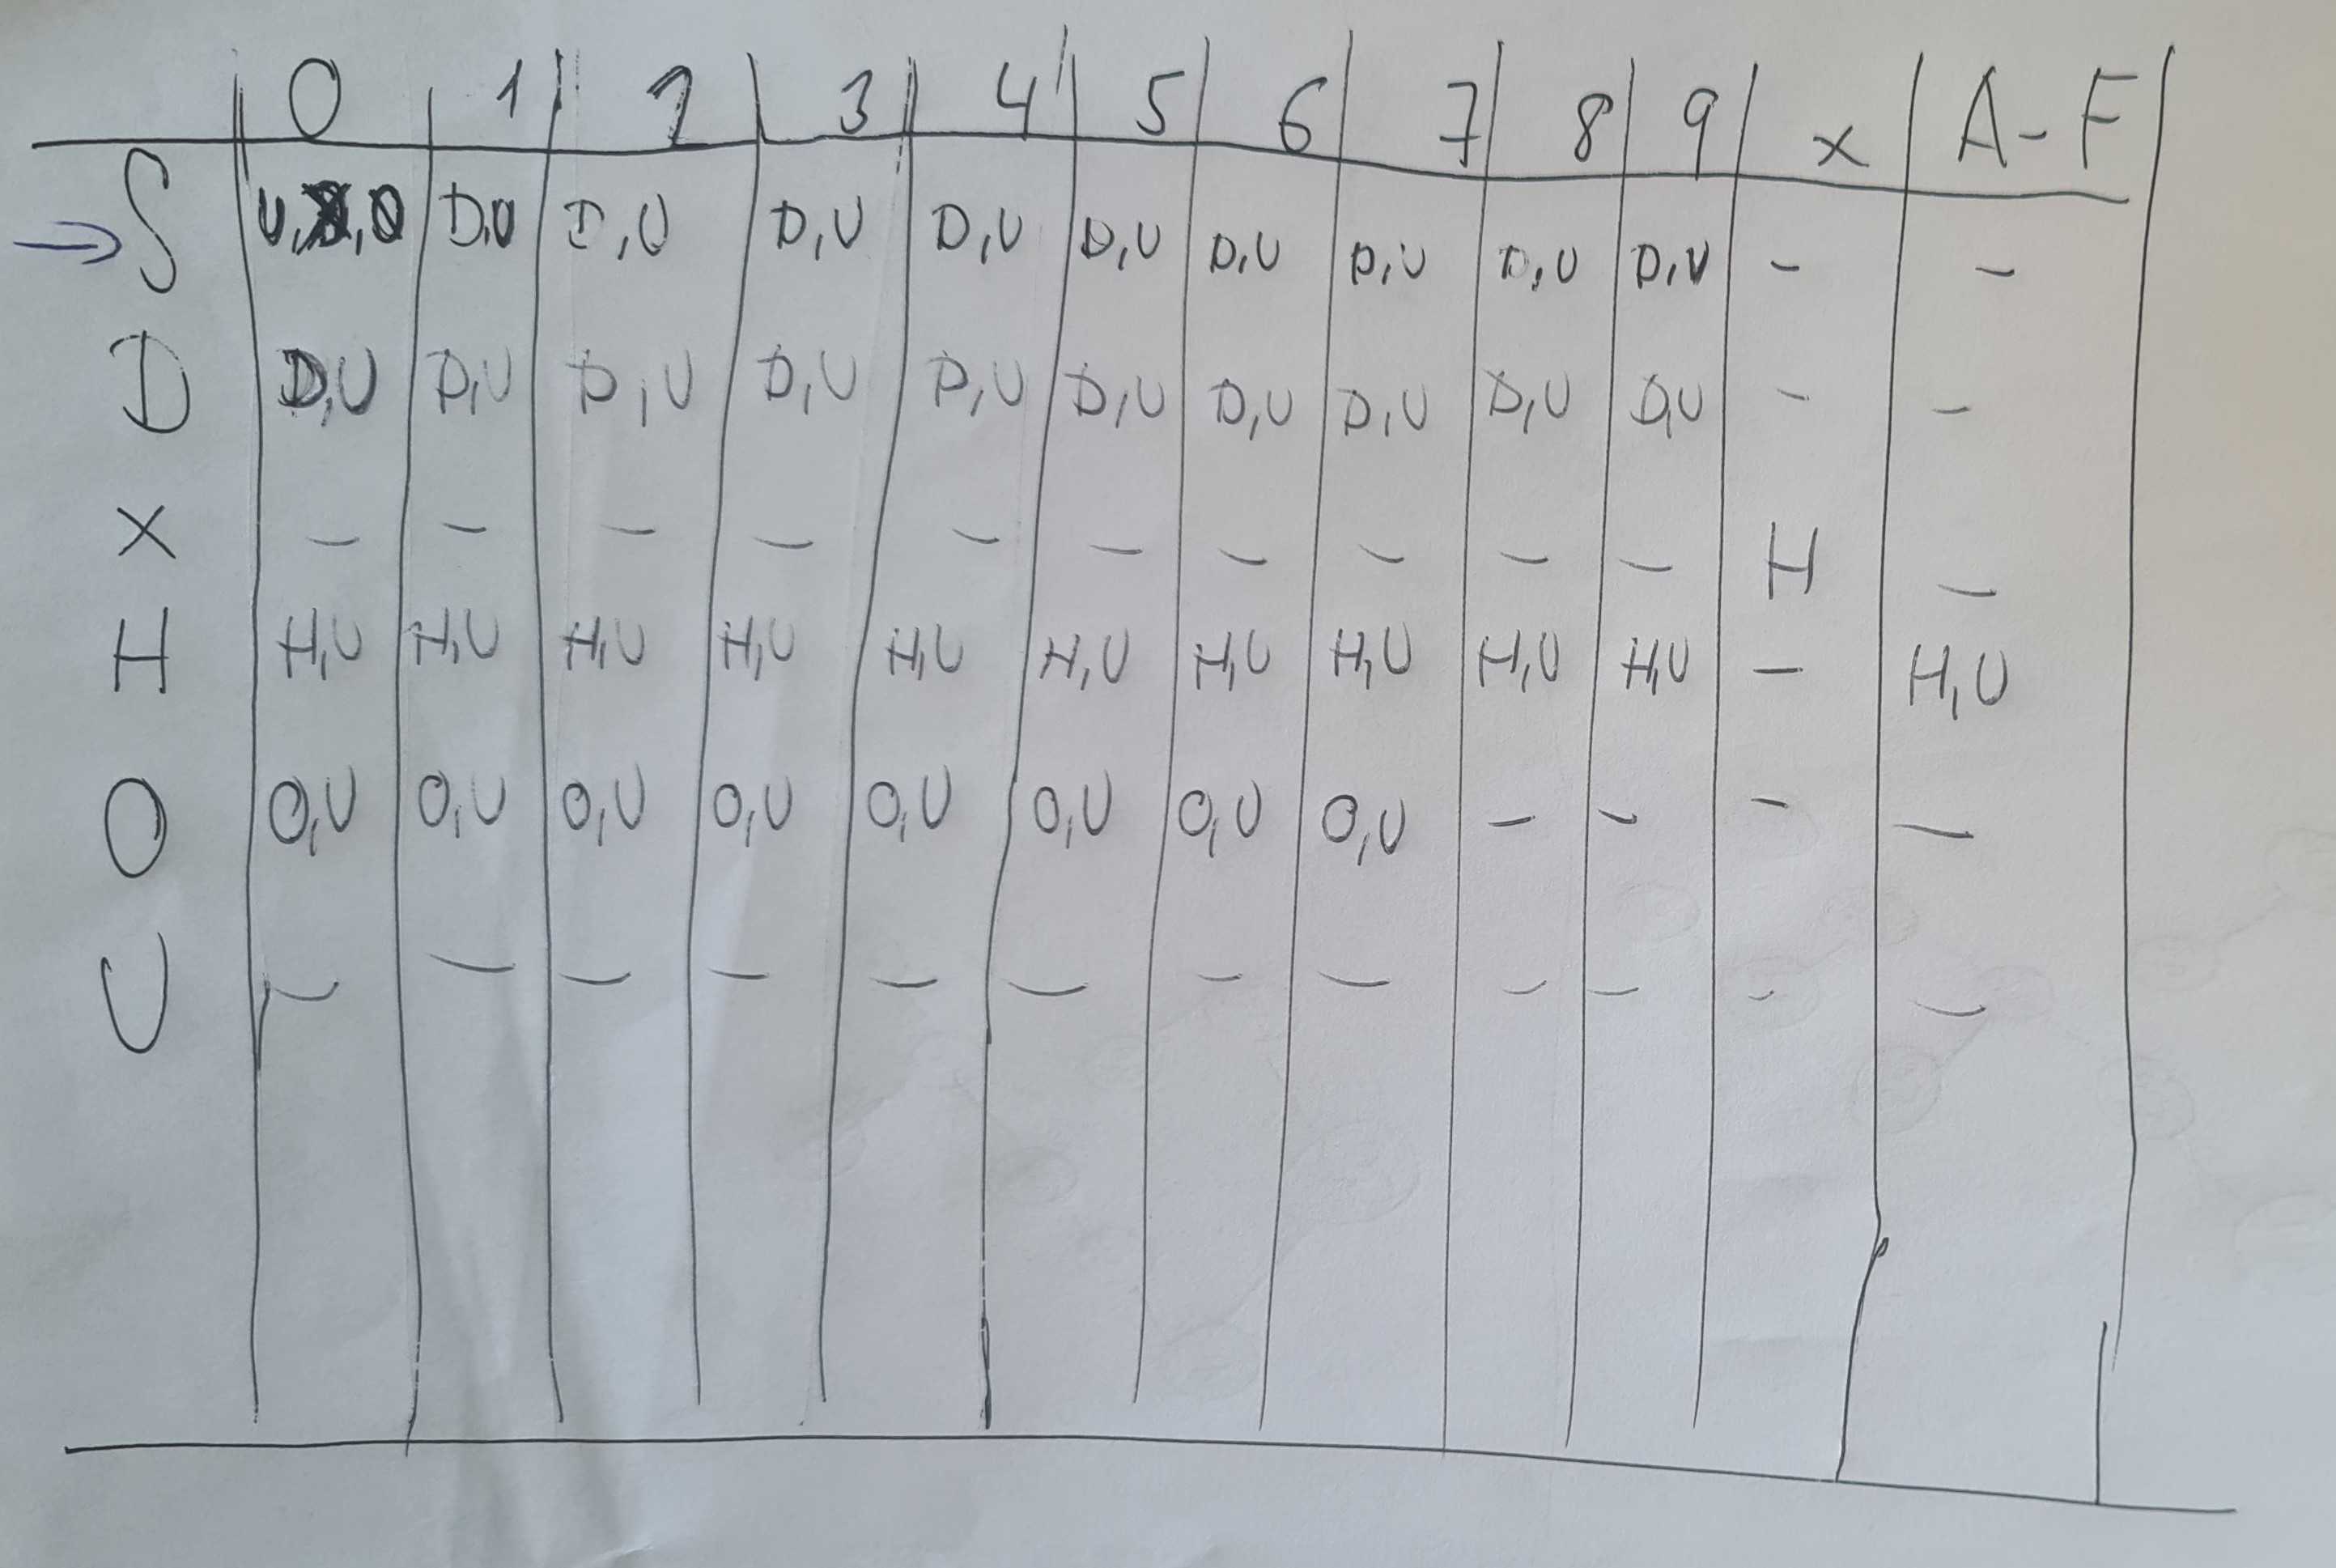 0 1 2 3 4 5 6 7 8 9 x A-F
→ S U, , D,U D,U D,U D,U D,U D,U D,U D,U D,U - -
D D,U D,U D,U D,U D,U D,U D,U D,U D,U D,U - -
X - - - - - - - - - - H -
H H,U H,U H,U H,U H,U H,U H,U H,U H,U H,U - H,U
O O,U O,U O,U O,U O,U O,U O,U O,U - - - -
U - - - - - - - - - - - -